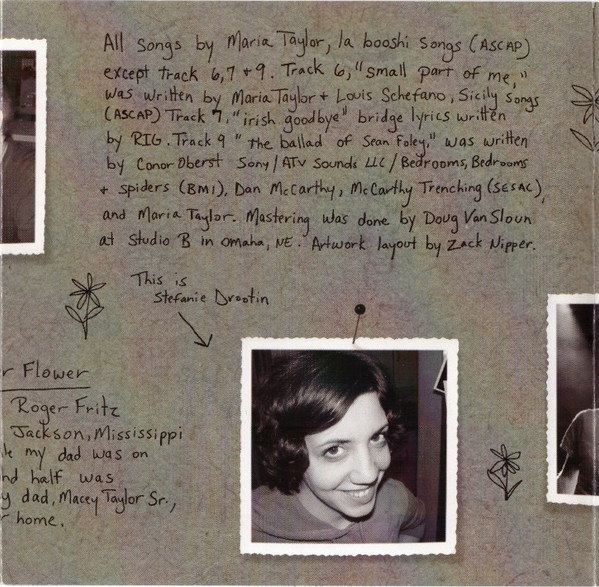 All songs by Maria Taylor, la booshi songs (ASCAP)
except track 6,7 + 9. Track 6, "small part of me,"
was written by Maria Taylor + Louis Schefano, Sicily songs
(ASCAP) Track 7, "irish goodbye" bridge lyrics written
by RIG. Track 9 "the ballad of Sean Foley," was written
by Conor Oberst Sony/ATV Sounds LLC/Bedrooms, Bedrooms
+ spiders (BMI), Dan McCarthy, McCarthy Trenching (SESAC),
and Maria Taylor. Mastering was done by Doug Van Sloun
at Studio B in Omaha, NE. Artwork layout by Zack Nipper.
This is
Stefanie Drootin
r Flower
Roger Fritz
Jackson, Mississippi
le my dad was on
nd half was
y dad, Macey Taylor Sr.,
r home.